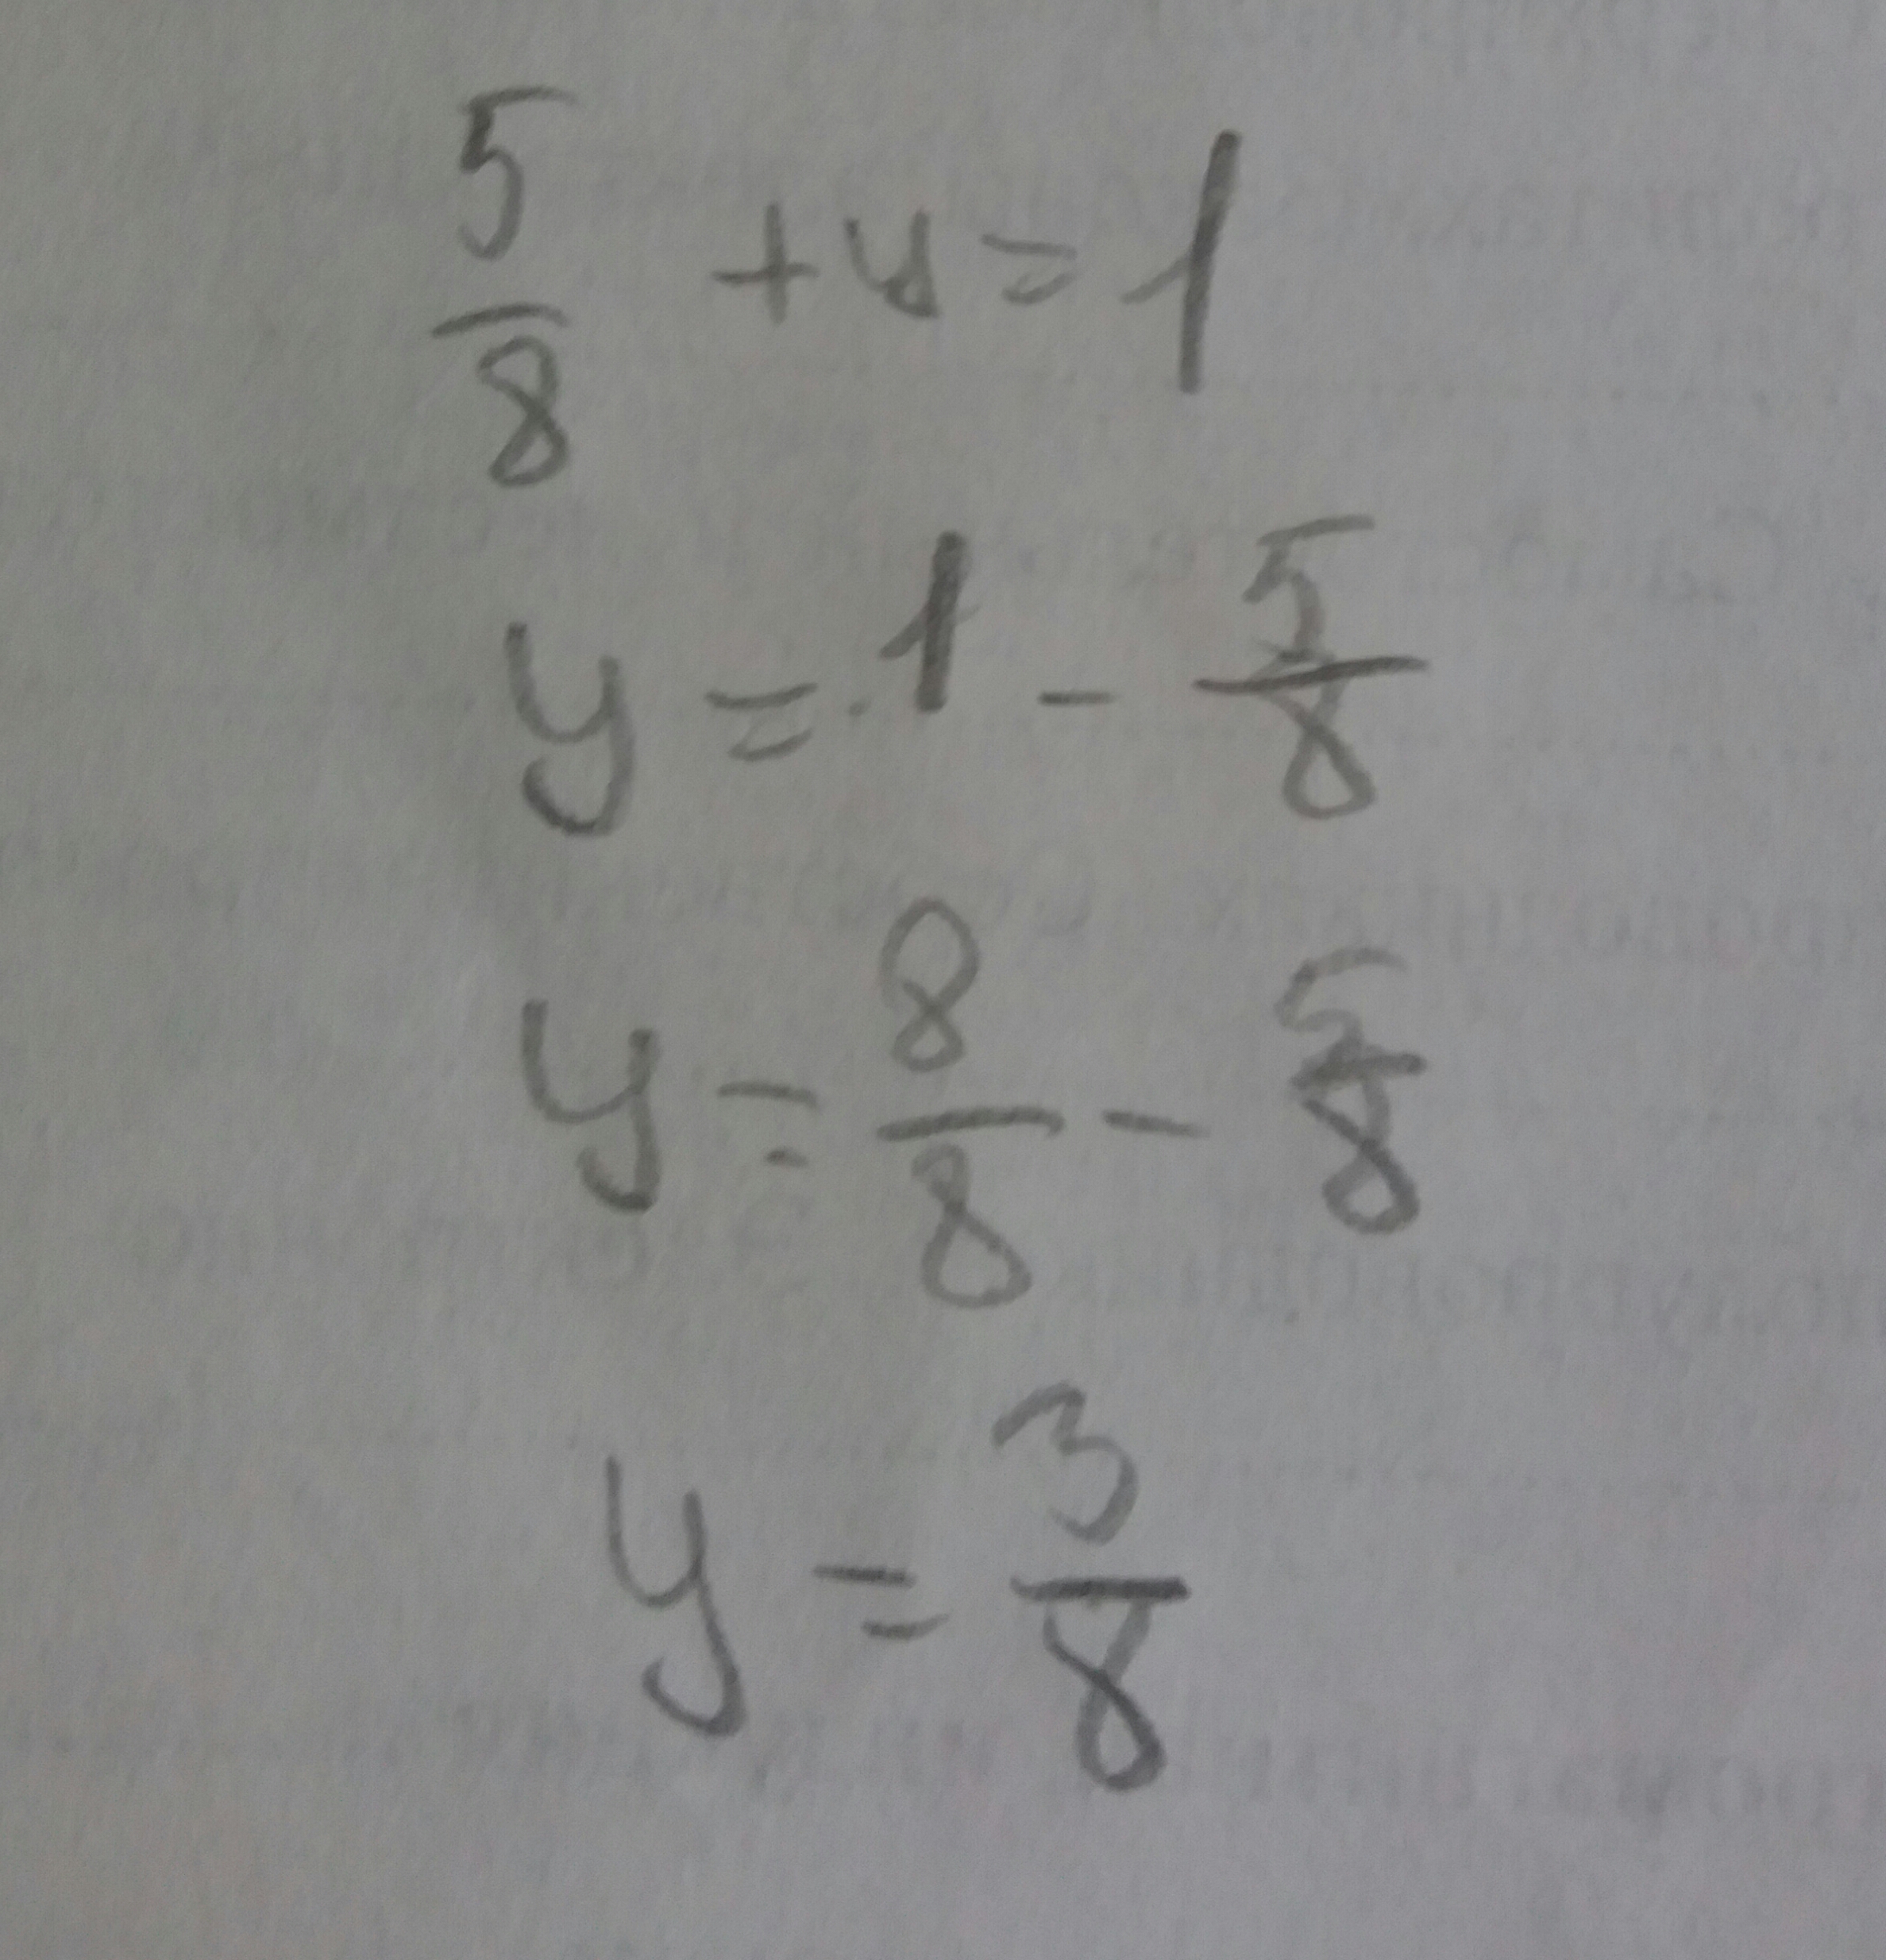 5/8 + y = 1
y = 1 - 5/8
y = 8/8 - 5/8
y = 3/8